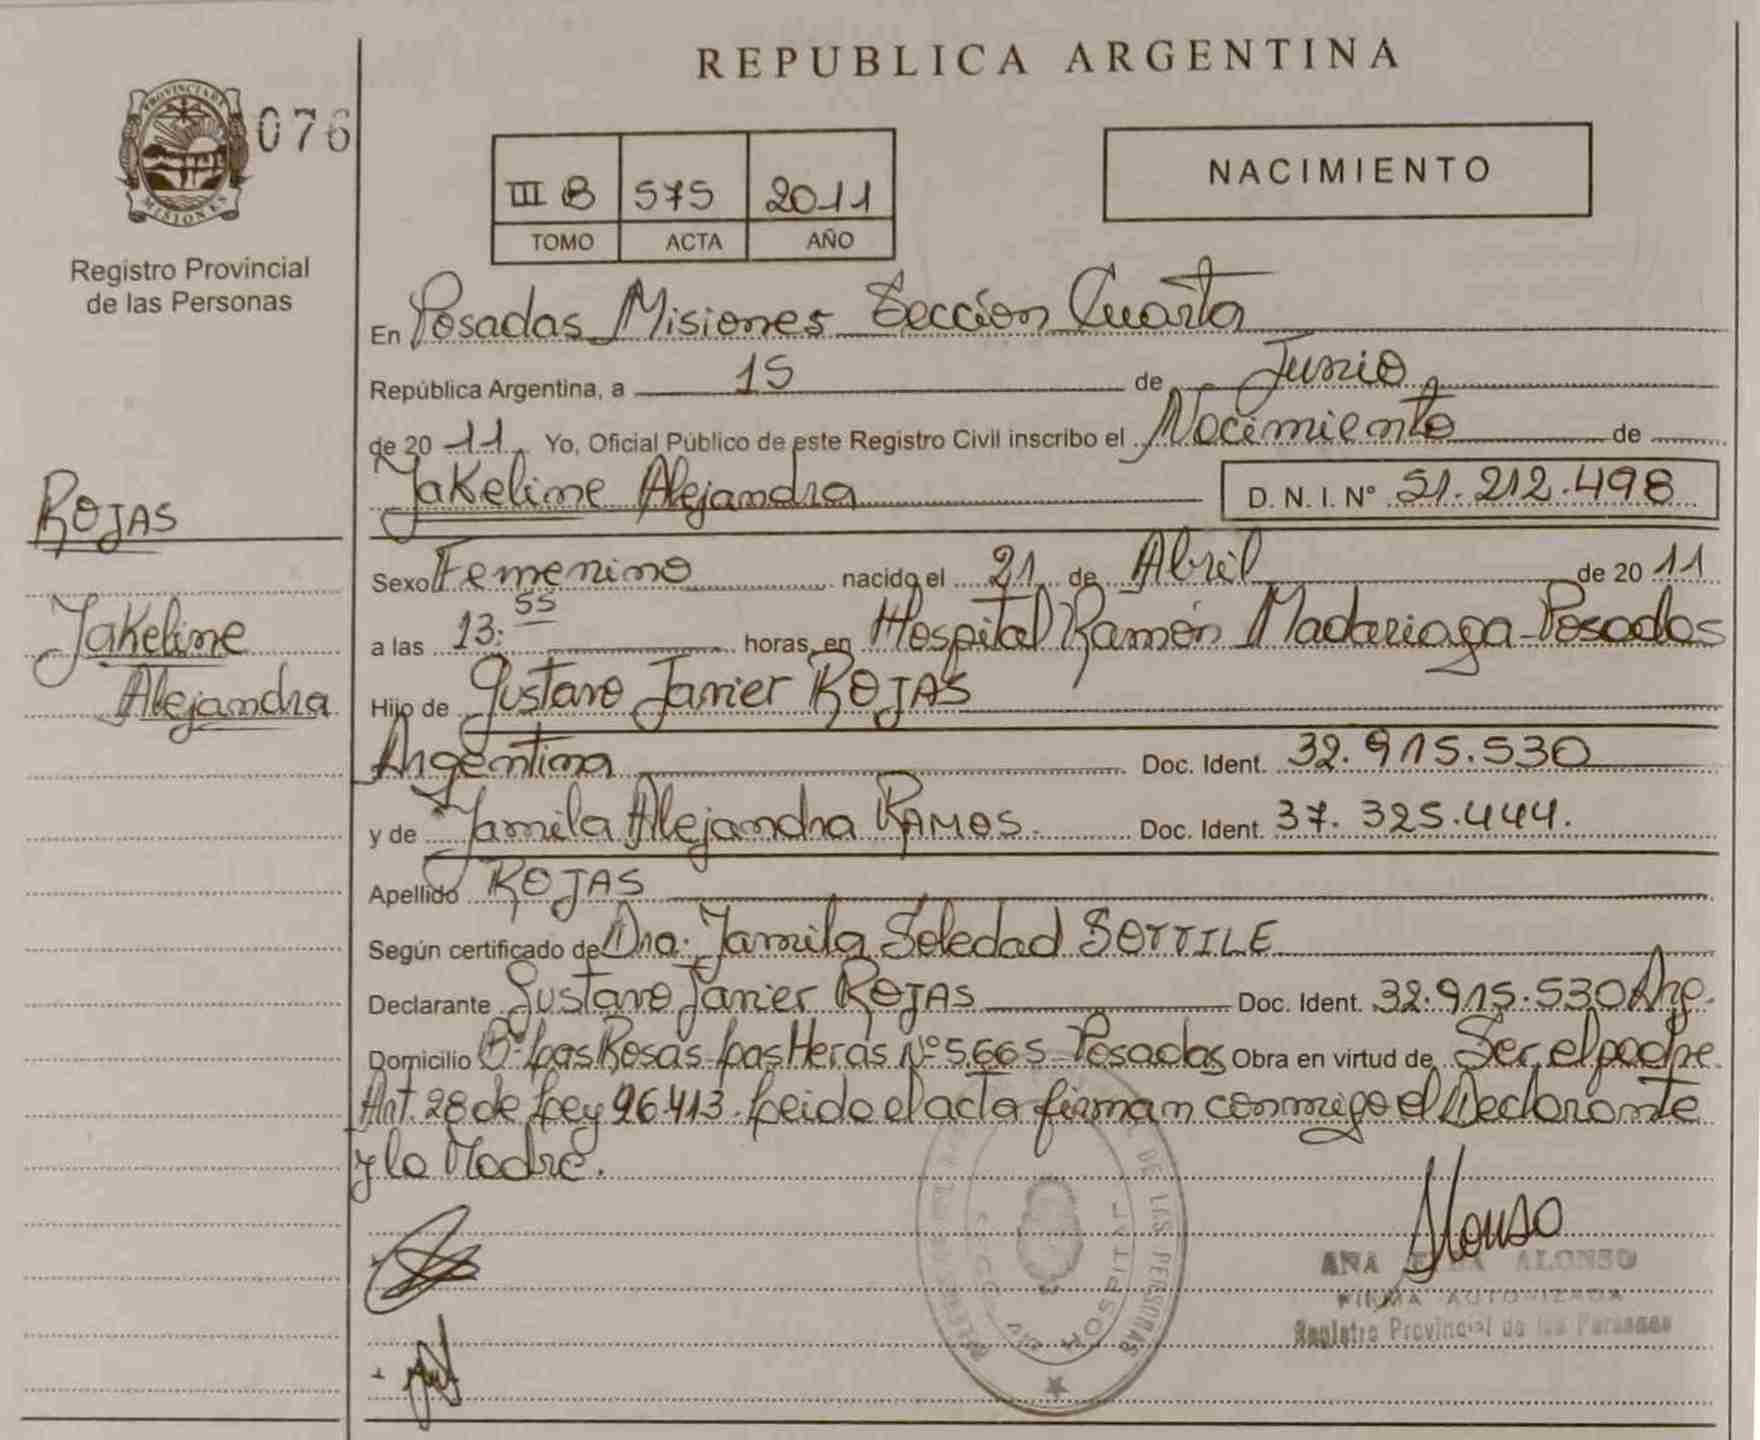 REPUBLICA ARGENTINA
PROVINCIA DE MISIONES
076
Registro Provincial
de las Personas
III B 575 2011
TOMO ACTA AÑO
NACIMIENTO
En Posadas Misiones Sección Cuarta
República Argentina, a 15 de Junio
de 2011 Yo, Oficial Público de este Registro Civil inscribo el Nacimiento de
Jakeline Alejandra D. N. I. Nº 51.212.498
ROJAS
Jakeline
Alejandra
Sexo Femenino nacido el 21 de Abril de 2011
a las 13:55 horas, en Hospital Ramón Madariaga-Posadas
Hijo de Gustavo Javier ROJAS
Argentina Doc. Ident. 32.915.530
y de Jamila Alejandra RAMOS. Doc. Ident. 37.325.444.
Apellido ROJAS
Según certificado de Dra. Jamila Soledad SOTTILE
Declarante Gustavo Javier ROJAS Doc. Ident. 32.915.530 Arg.
Domicilio Bº Las Rosas Las Heras Nº 5665 Posadas Obra en virtud de Ser el padre
Art. 28 de Ley 26.413. Leido el acta firman conmigo el Declarante
y la Madre.
Alonso
ANA ALONSO
FIRMA AUTORIZADA
Registro Provincial de las Personas
DE LAS PERSONAS
HOSPITAL